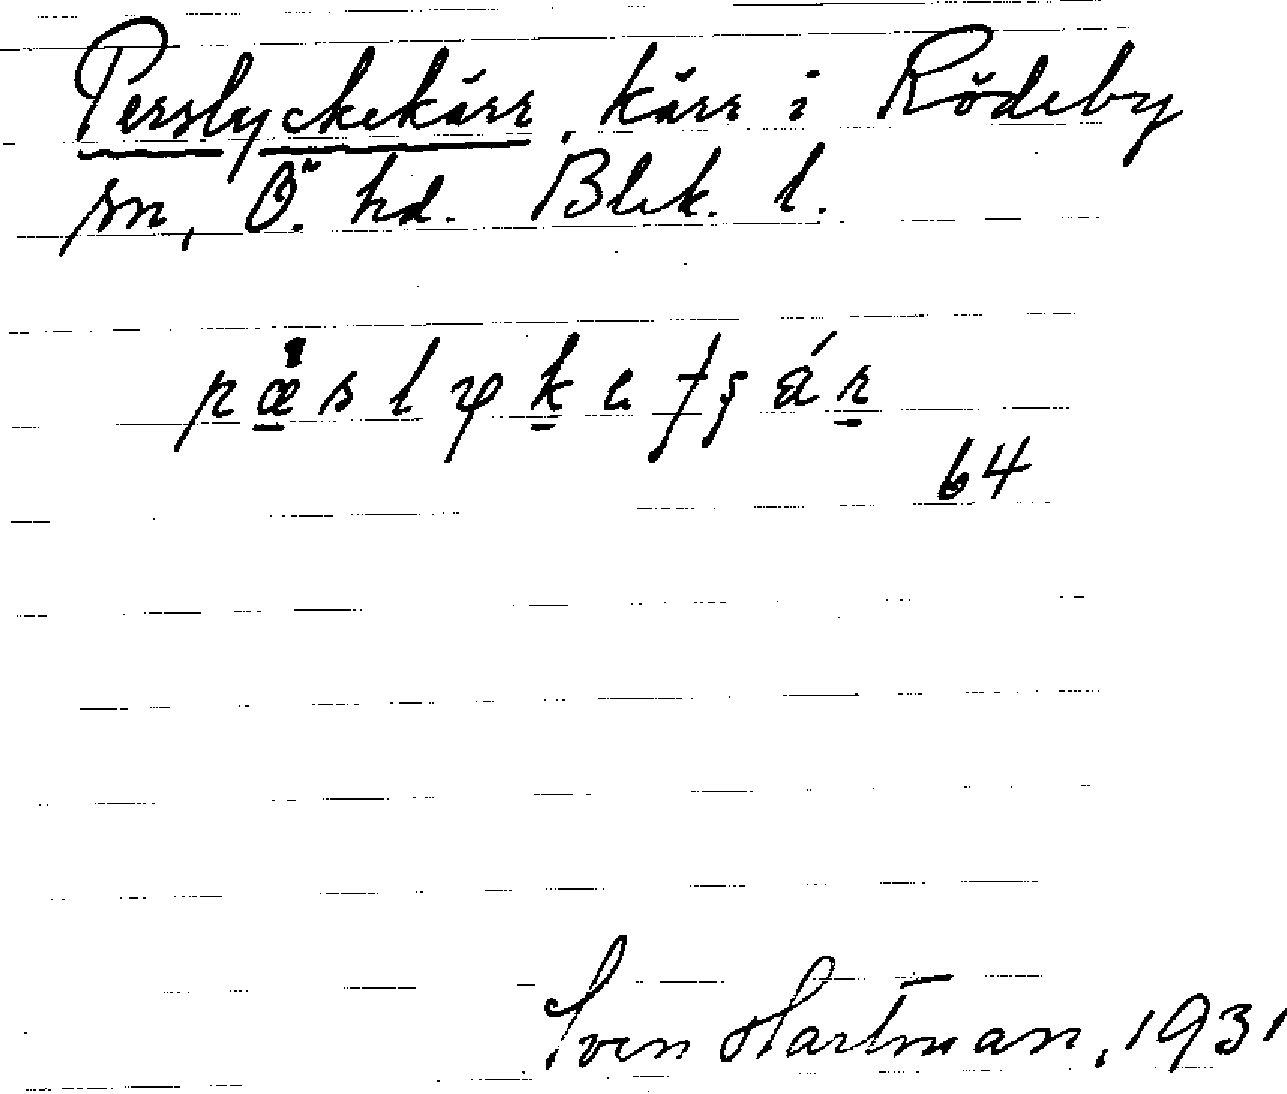 Perslyckekärr, kärr i Rödeby
sn, Ö. hd. Blek. l.
64
Sven Hartman, 1931